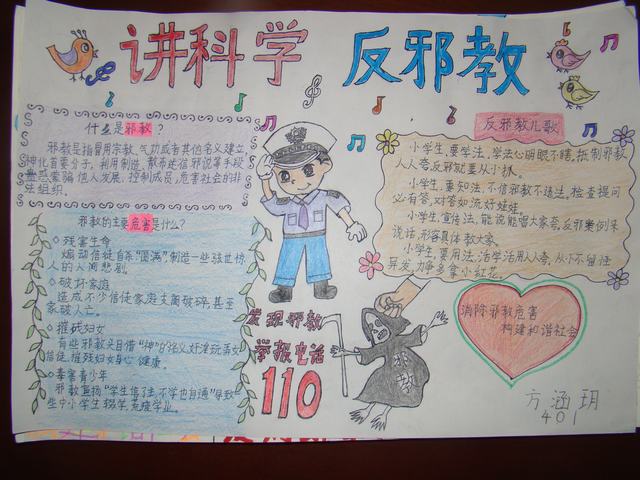 讲科学 反邪教
什么是邪教？
邪教是指冒用宗教、气功或者其他名义建立，
神化首要分子，利用制造、散布迷信邪说等手段
蛊惑蒙骗他人发展、控制成员，危害社会的非
法组织。
邪教的主要危害是什么？
◇残害生命
煽动信徒自杀“圆满”制造一些骇世惊
人的人间悲剧。
◇破坏家庭
造成不少信徒家庭支离破碎，甚至
家破人亡。
◇摧残妇女
有些邪教头目借“神”的名义，奸淫玩弄女
信徒，摧残妇女身心健康。
◇毒害青少年
邪教宣扬“学生信了主，不学也自通”导致一
些中小学生辍学，荒废学业。
发现邪教
举报电话
110
邪教
反邪教儿歌
小学生，要学法，学法心明眼不瞎，抵制邪教
人人夸，反邪就要从小抓。
小学生，要知法，不信邪教不违法，检查提问
必有答，对答如流好娃娃。
小学生，宣传法，能说能唱大家夸，反邪案例来
说话，形容具体教大家。
小学生，要用法，活学活用人人夸，从小不留性
异发，力争多拿小红花。
消除邪教危害
构建和谐社会
方涵玥
401